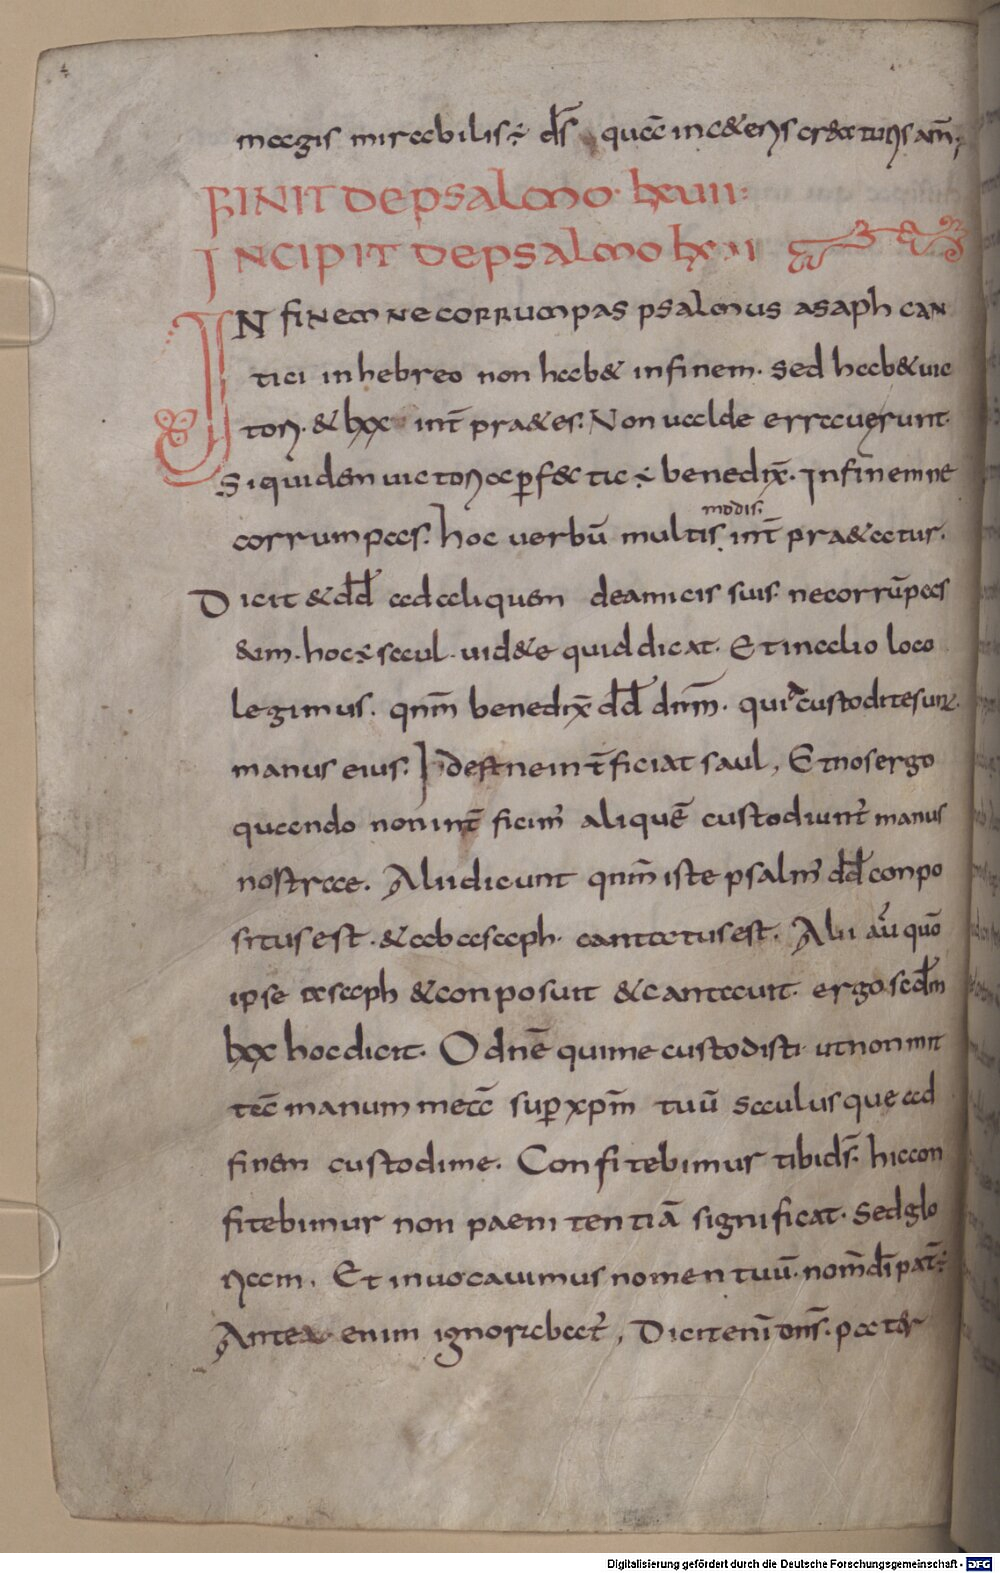 magis mirabilis ÷ ds̄ quā in ceteris creaturis am̄;
FINIT DE PSALMO· LXVII:
INCIPIT DE PSALMO LX II
IN FINEM NE CORRUMPAS PSALMUS ASAPH CAN
tici in hebreo non hab& in finem. Sed hab& uic
tori. & lxx int̄ pra&es. Non ualde errauerunt.
Siquidem uictoria perfecta ÷ benedix̄. In finem ne
corrumpas. hoc uerbū multis modis. int̄ pra&atur.
Dicit & dd̄ ad aliquem de amicis suis. ne corrūpas
&im. hoc ÷ saul. uid&e quid dicat. Et in alio loco
legimus. qnm̄ benedix̄ dd̄ dnm̄. qui custodite sunt
manus eius. Id est ne int̄ficiat saul, Et nos ergo
quando non int̄ficim̄ aliquē custodiunt̄ manus
nostrae. Alii dicunt qnm̄ iste psalm̄ dd̄ conpo
situs est. & ab asaph. cantatus est. Alii aū quō
ipse asaph & conposuit & cantauit. ergo scdm̄
lxx hoc dicit. O dnē qui me custodisti ut non mit
tā manum meā sup xpm̄ tuū saulus que ad
finem custodi me. Confitebimur tibi ds̄. hic con
fitebimur non paenitentiā significat. Sed glo
riam. Et inuocauimus nomen tuū. nom̄ dī pat̄:
Antea enim ignorabat̄, Dicit enī dns̄. pater
Digitalisierung gefördert durch die Deutsche Forschungsgemeinschaft - DFG